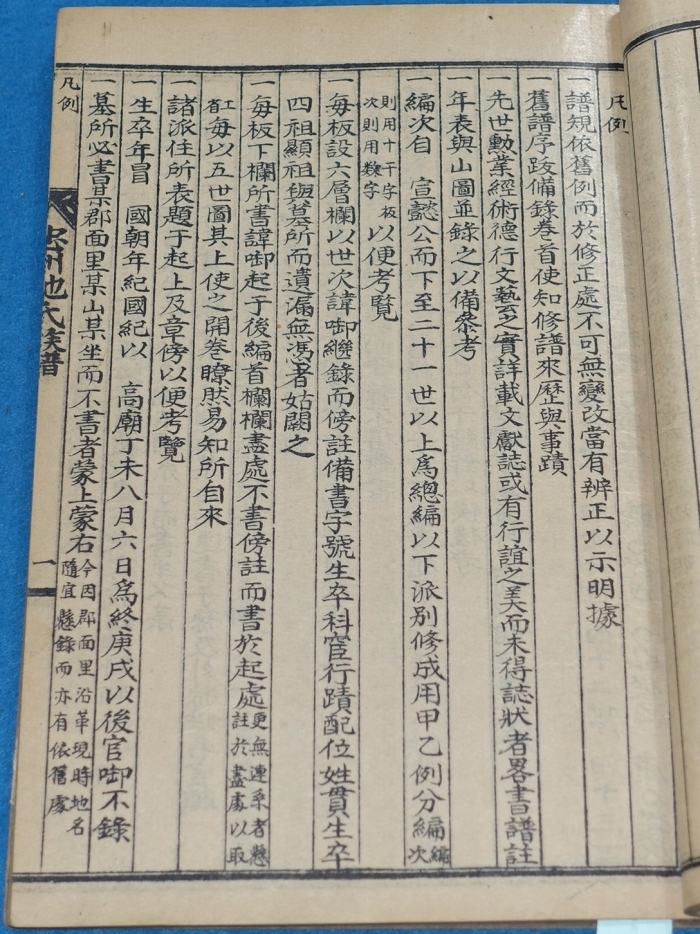 凡例
一譜規依舊例而於修正處不可無變改當有辨正以示明據
一舊譜序跋備錄卷首使知修譜來歷與事蹟
一先世勳業經術德行文藝之實詳載文獻誌或有行誼之美而未得誌狀者畧書譜註
一年表與山圖並錄之以備叅考
一編次自 宣懿公而下至二十一世以上爲總編以下派別修成用甲乙例分編編次
則用十干字板次則用數字以便考覽
一每板設六層欄以世次諱啣繼錄而傍註備書字號生卒科宦行蹟配位姓貫生卒
四祖顯祖與墓所而遺漏無憑者姑闕之
一每板下欄所書諱啣起于後編首欄欄盡處不書傍註而書於起處更無連系者懸註於盡處以取
省工每以五世圖其上使之開卷瞭然易知所自來
一諸派住所表題于起上及章傍以便考覽
一生卒年冒 國朝年紀國紀以 高廟丁未八月六日爲終庚戌以後官啣不錄
一墓所必書某郡面里某山某坐而不書者蒙上蒙右今因郡面里沿革現時地名隨宜懸錄而亦有依舊處
凡例
忠州池氏族譜
一